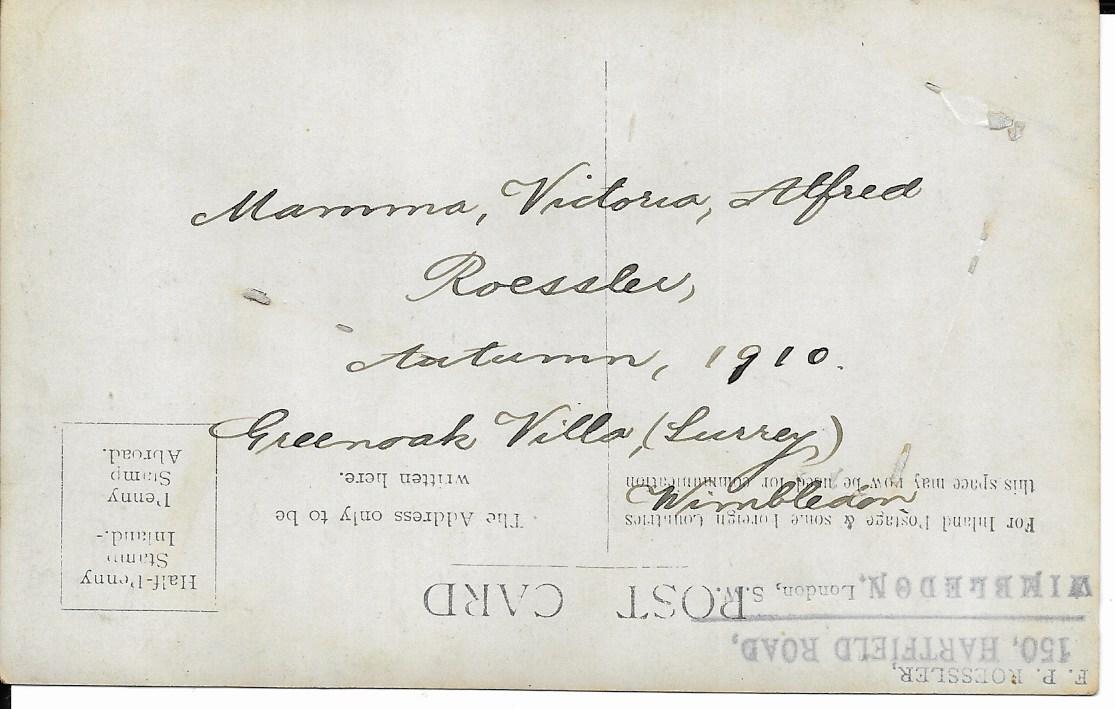 Mamma, Victoria, Alfred
Roessler,
Autumn, 1910.
Greenoak Villa, (Surrey)
Wimbledon
POST CARD
For Inland Postage & some Foreign Countries
this space may now be used for communication
The Address only to be
written here.
Half-Penny
Stamp
Inland.-
Penny
Stamp
Abroad.
F. P. ROESSLER,
150, HARTFIELD ROAD,
WIMBLEDON, London, S.W.